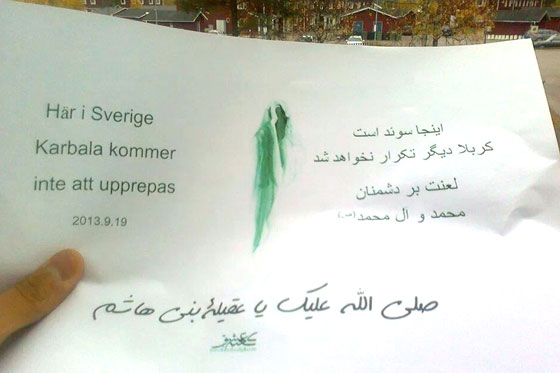 Här i Sverige
Karbala kommer
inte att upprepas
2013.9.19
اینجا سوئد است
کربلا دیگر تکرار نخواهد شد
لعنت بر دشمنان
محمد و آل محمد(ص)
صلی الله علیک یا عقیلة بنی هاشم